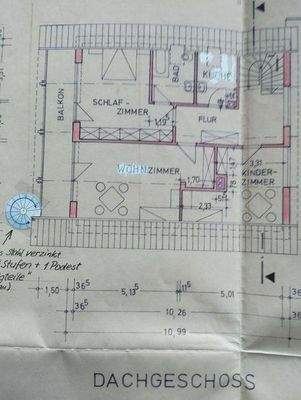 BALKON
SCHLAF-
ZIMMER
BAD
KÜCHE
FLUR
WOHNZIMMER
KINDER-
ZIMMER
1,19⁵
1,70
2,33
3,31
Stahl verzinkt
Stufen + 1 Podest
1,50
36⁵
5,13⁵
11⁵
5,01
36⁵
10,26
10,99
DACHGESCHOSS